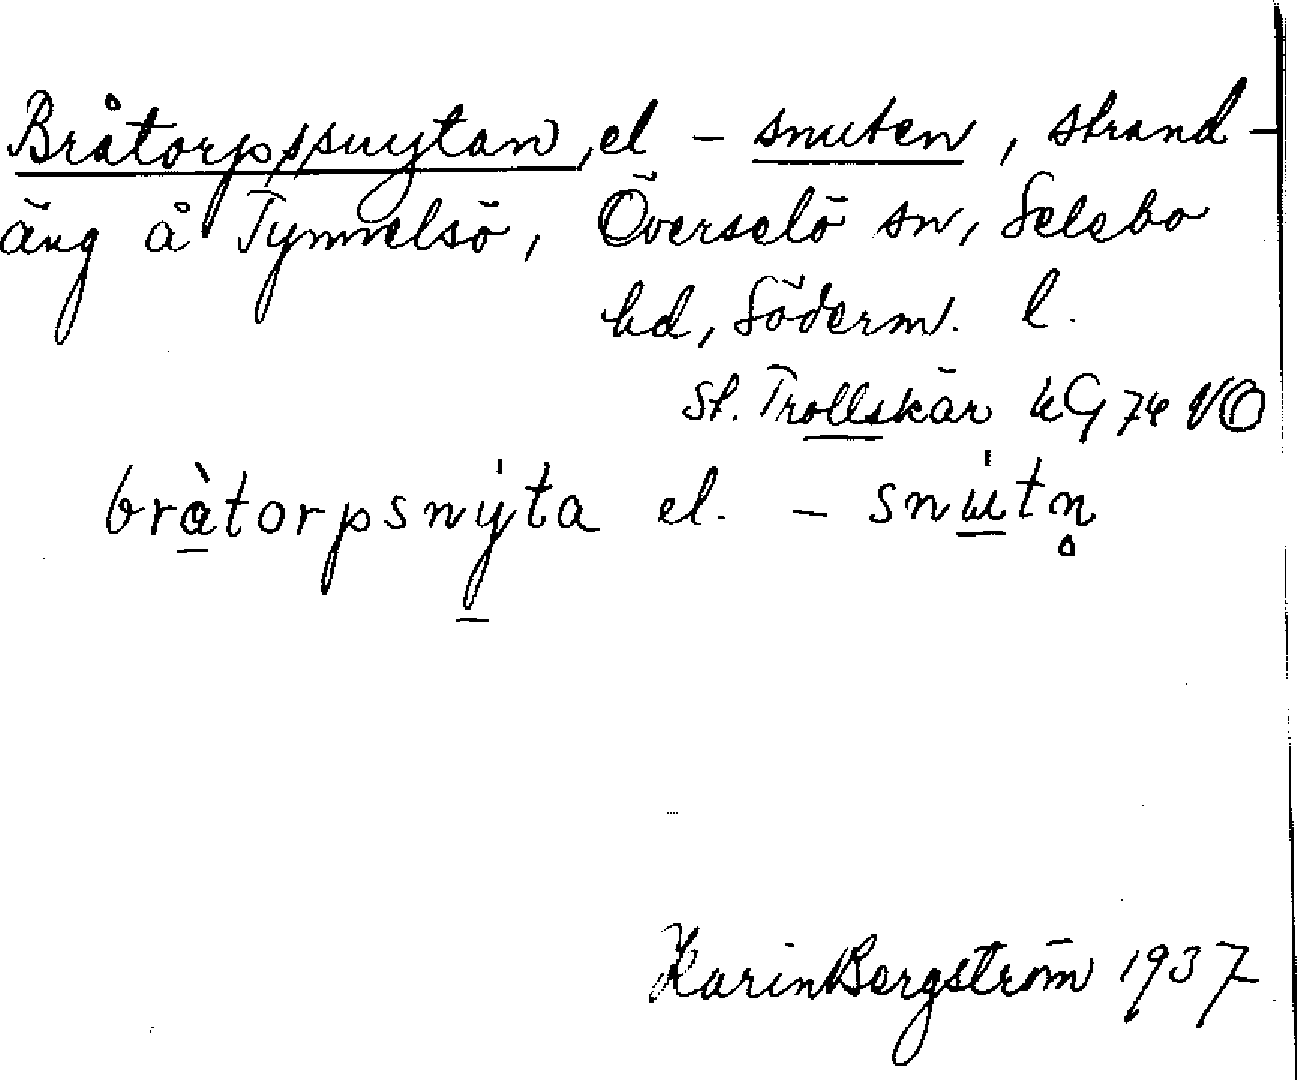 Bråtorpssnytan, el - snuten, strand-
äng å Tynnelsö, Överselö sn, Selebo
hd, Söderm. l.
St. Trollskär kG 74 VO
bràtorpsnýta el. - snútn̥
Karin Bergström 1937